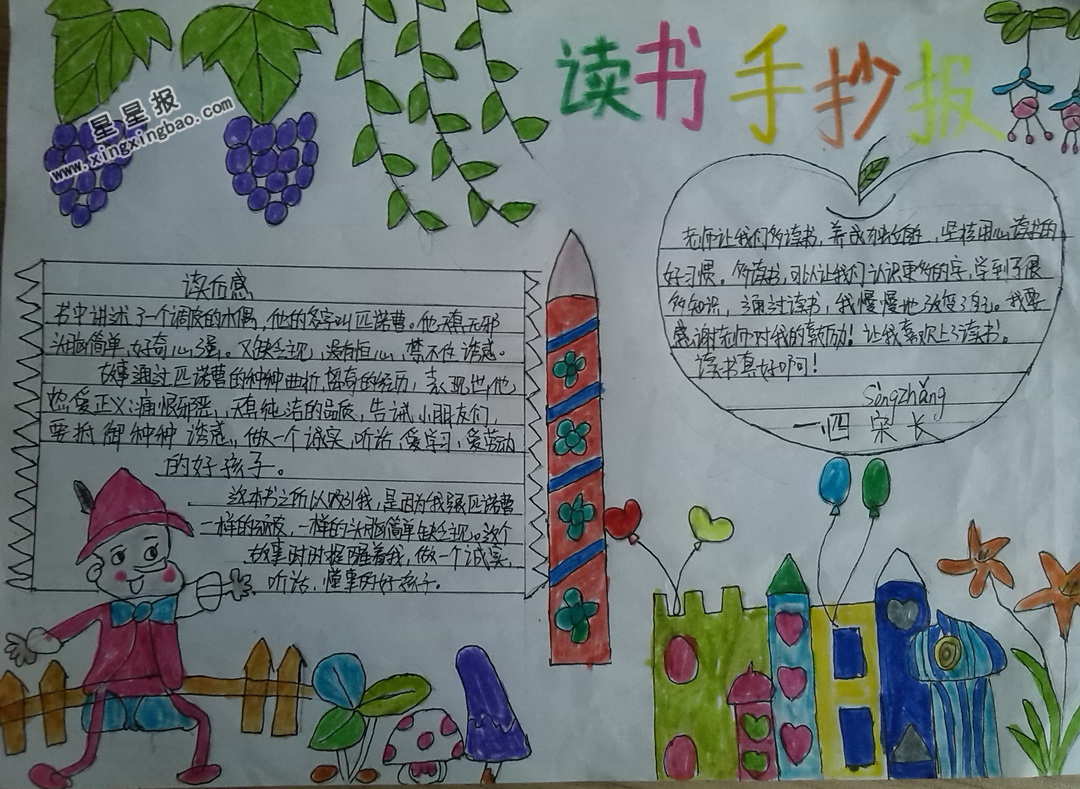 读书手抄报
星星报
www.xingxingbao.com
读后感
书中讲述了一个调皮的木偶，他的名字叫匹诺曹。他天真无邪
头脑简单，好奇心强。又缺乏主见，没有恒心，禁不住诱惑。
故事通过匹诺曹的种种曲折离奇的经历，表现出他
热爱正义，痛恨邪恶，天真纯洁的品质，告诫小朋友们，
要抵御种种诱惑，做一个诚实，听话，爱学习，爱劳动
的好孩子。
这本书之所以吸引我，是因为我跟匹诺曹
一样的顽皮，一样的头脑简单缺乏主见。这个
故事时时提醒着我，做一个诚实，
听话，懂事的好孩子。
老师让我们多读书，养成，坚持用心读书的
好习惯。多读书，可以让我们认识更多的字，学到了很
多知识，通过读书，我慢慢地改变了自己。我要
感谢老师对我的鼓励！让我喜欢上了读书。
读书真好啊！
Sòngzhǎng
一四 宋长